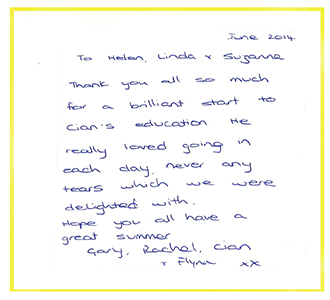 June 2014
To Helen, Linda & Suzanne
Thank you all so much
for a brilliant start to
Cian's education. He
really loved going in
each day, never any
tears which we were
delighted with.
Hope you all have a
great summer
Gary, Rachel, Cian
& Flynn xx